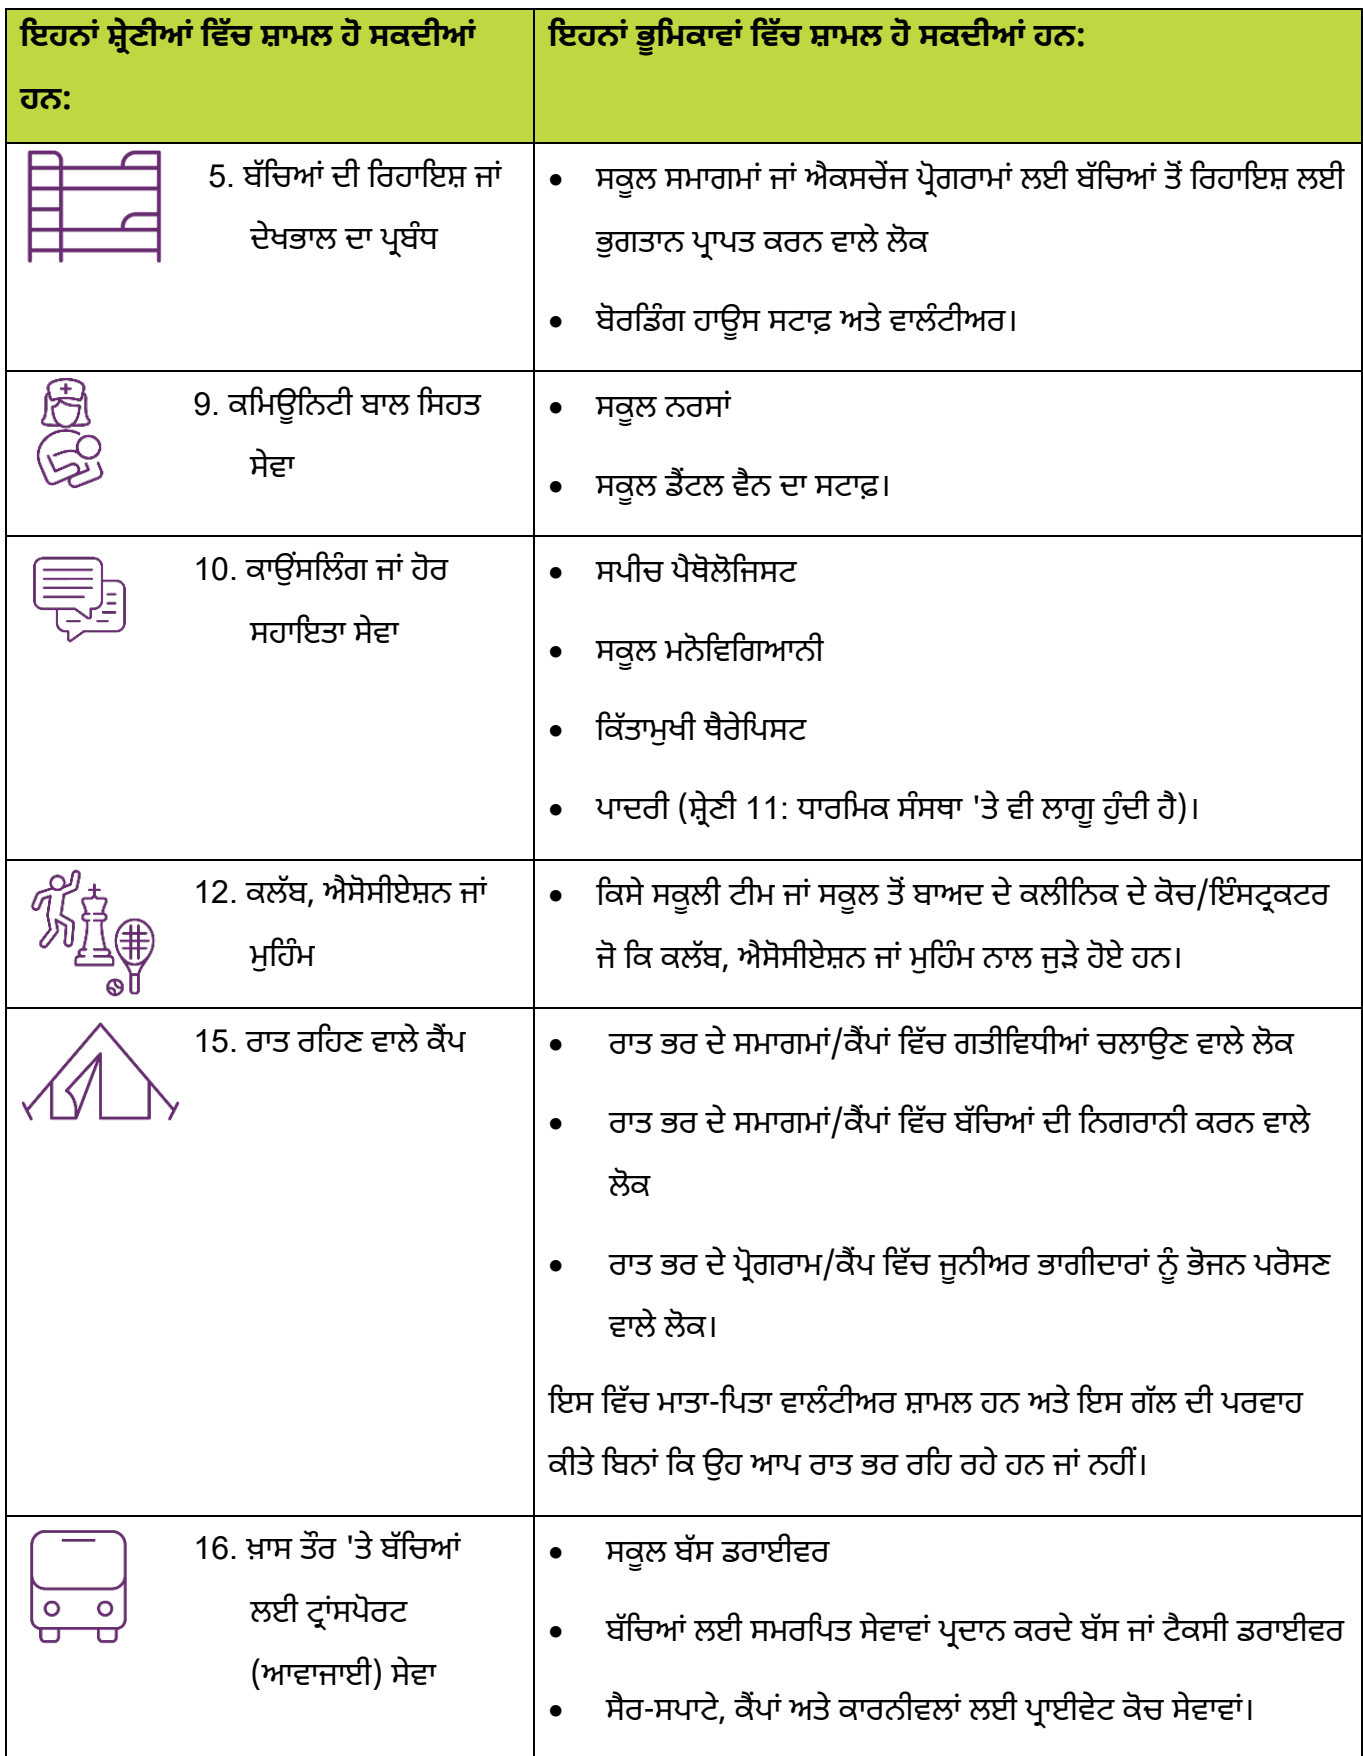 ਇਹਨਾਂ ਸ਼੍ਰੇਣੀਆਂ ਵਿੱਚ ਸ਼ਾਮਲ ਹੋ ਸਕਦੀਆਂ
ਹਨ:
ਇਹਨਾਂ ਭੂਮਿਕਾਵਾਂ ਵਿੱਚ ਸ਼ਾਮਲ ਹੋ ਸਕਦੀਆਂ ਹਨ:
5. ਬੱਚਿਆਂ ਦੀ ਰਿਹਾਇਸ਼ ਜਾਂ
ਦੇਖਭਾਲ ਦਾ ਪ੍ਰਬੰਧ
• ਸਕੂਲ ਸਮਾਗਮਾਂ ਜਾਂ ਐਕਸਚੇਂਜ ਪ੍ਰੋਗਰਾਮਾਂ ਲਈ ਬੱਚਿਆਂ ਤੋਂ ਰਿਹਾਇਸ਼ ਲਈ
ਭੁਗਤਾਨ ਪ੍ਰਾਪਤ ਕਰਨ ਵਾਲੇ ਲੋਕ
• ਬੋਰਡਿੰਗ ਹਾਊਸ ਸਟਾਫ਼ ਅਤੇ ਵਾਲੰਟੀਅਰ।
9. ਕਮਿਊਨਿਟੀ ਬਾਲ ਸਿਹਤ
ਸੇਵਾ
• ਸਕੂਲ ਨਰਸਾਂ
• ਸਕੂਲ ਡੈਂਟਲ ਵੈਨ ਦਾ ਸਟਾਫ਼।
10. ਕਾਉਂਸਲਿੰਗ ਜਾਂ ਹੋਰ
ਸਹਾਇਤਾ ਸੇਵਾ
• ਸਪੀਚ ਪੈਥੋਲੋਜਿਸਟ
• ਸਕੂਲ ਮਨੋਵਿਗਿਆਨੀ
• ਕਿੱਤਾਮੁਖੀ ਥੈਰੇਪਿਸਟ
• ਪਾਦਰੀ (ਸ਼੍ਰੇਣੀ 11: ਧਾਰਮਿਕ ਸੰਸਥਾ 'ਤੇ ਵੀ ਲਾਗੂ ਹੁੰਦੀ ਹੈ)।
12. ਕਲੱਬ, ਐਸੋਸੀਏਸ਼ਨ ਜਾਂ
ਮੁਹਿੰਮ
• ਕਿਸੇ ਸਕੂਲੀ ਟੀਮ ਜਾਂ ਸਕੂਲ ਤੋਂ ਬਾਅਦ ਦੇ ਕਲੀਨਿਕ ਦੇ ਕੋਚ/ਇੰਸਟ੍ਰਕਟਰ
ਜੋ ਕਿ ਕਲੱਬ, ਐਸੋਸੀਏਸ਼ਨ ਜਾਂ ਮੁਹਿੰਮ ਨਾਲ ਜੁੜੇ ਹੋਏ ਹਨ।
15. ਰਾਤ ਰਹਿਣ ਵਾਲੇ ਕੈਂਪ
• ਰਾਤ ਭਰ ਦੇ ਸਮਾਗਮਾਂ/ਕੈਂਪਾਂ ਵਿੱਚ ਗਤੀਵਿਧੀਆਂ ਚਲਾਉਣ ਵਾਲੇ ਲੋਕ
• ਰਾਤ ਭਰ ਦੇ ਸਮਾਗਮਾਂ/ਕੈਂਪਾਂ ਵਿੱਚ ਬੱਚਿਆਂ ਦੀ ਨਿਗਰਾਨੀ ਕਰਨ ਵਾਲੇ
ਲੋਕ
• ਰਾਤ ਭਰ ਦੇ ਪ੍ਰੋਗਰਾਮ/ਕੈਂਪ ਵਿੱਚ ਜੂਨੀਅਰ ਭਾਗੀਦਾਰਾਂ ਨੂੰ ਭੋਜਨ ਪਰੋਸਣ
ਵਾਲੇ ਲੋਕ।
ਇਸ ਵਿੱਚ ਮਾਤਾ-ਪਿਤਾ ਵਾਲੰਟੀਅਰ ਸ਼ਾਮਲ ਹਨ ਅਤੇ ਇਸ ਗੱਲ ਦੀ ਪਰਵਾਹ
ਕੀਤੇ ਬਿਨਾਂ ਕਿ ਉਹ ਆਪ ਰਾਤ ਭਰ ਰਹਿ ਰਹੇ ਹਨ ਜਾਂ ਨਹੀਂ।
16. ਖ਼ਾਸ ਤੌਰ 'ਤੇ ਬੱਚਿਆਂ
ਲਈ ਟ੍ਰਾਂਸਪੋਰਟ
(ਆਵਾਜਾਈ) ਸੇਵਾ
• ਸਕੂਲ ਬੱਸ ਡਰਾਈਵਰ
• ਬੱਚਿਆਂ ਲਈ ਸਮਰਪਿਤ ਸੇਵਾਵਾਂ ਪ੍ਰਦਾਨ ਕਰਦੇ ਬੱਸ ਜਾਂ ਟੈਕਸੀ ਡਰਾਈਵਰ
• ਸੈਰ-ਸਪਾਟੇ, ਕੈਂਪਾਂ ਅਤੇ ਕਾਰਨੀਵਲਾਂ ਲਈ ਪ੍ਰਾਈਵੇਟ ਕੋਚ ਸੇਵਾਵਾਂ।